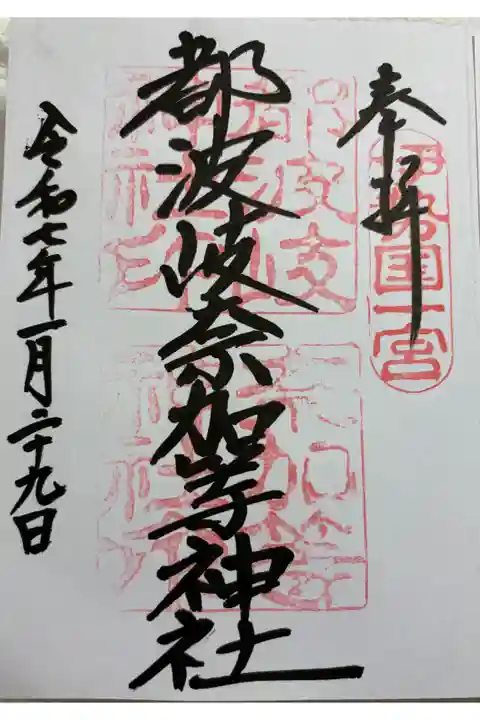 奉拝
伊勢国一宮
都波岐奈加等神社
令和七年一月二十九日